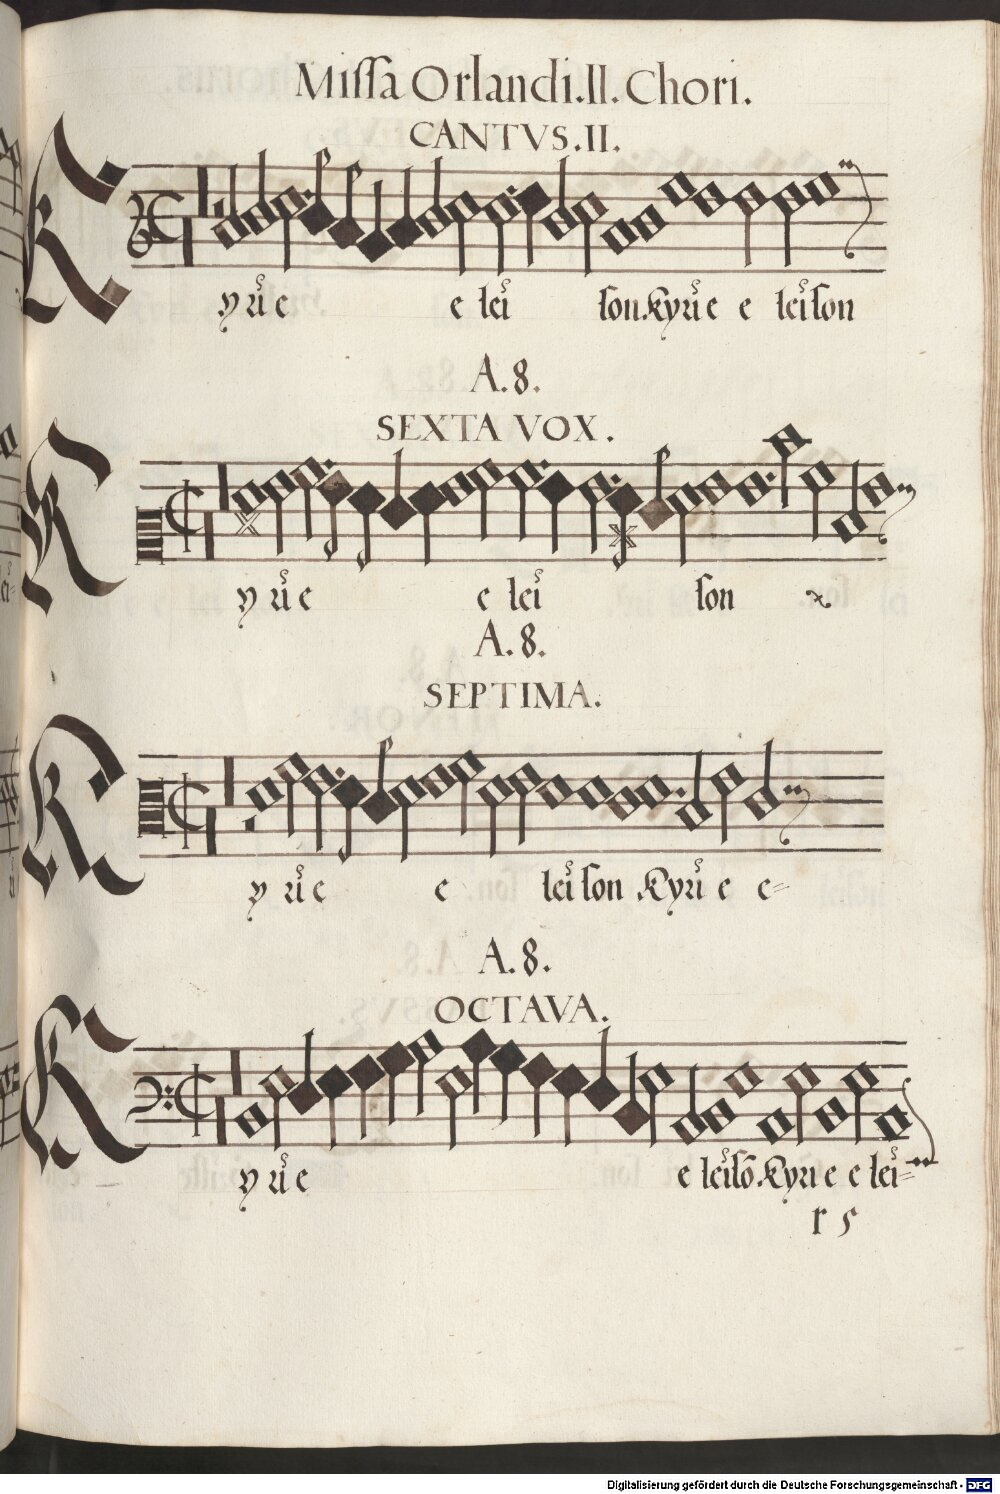 Missa Orlandi.II. Chori.
CANTVS.II.
Kyrie e lei son Kyrie e leison
A.8.
SEXTA VOX.
Kyrie e lei son
A.8.
SEPTIMA.
Kyrie e leison Kyrie e=
A.8.
OCTAVA.
Kyrie e leisō Kyrie e lei=
r s
Digitalisierung gefördert durch die Deutsche Forschungsgemeinschaft - DFG